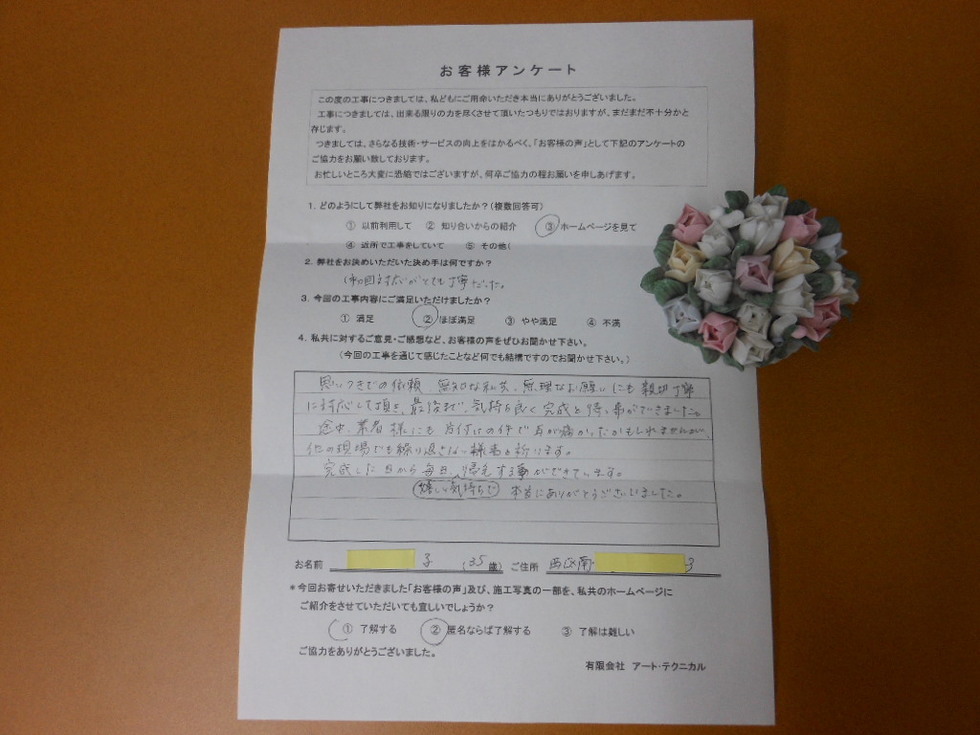 お客様アンケート
この度の工事につきましては、私どもにご用命いただき本当にありがとうございました。
工事につきましては、出来る限りの力を尽くさせて頂いたつもりではおりますが、まだまだ不十分かと
存じます。
つきましては、さらなる技術・サービスの向上をはかるべく、「お客様の声」として下記のアンケートの
ご協力をお願い致しております。
お忙しいところ大変に恐縮ではございますが、何卒ご協力の程お願いを申しあげます。
1. どのようにして弊社をお知りになりましたか？（複数回答可）
① 以前利用して ② 知り合いからの紹介 ③ ホームページを見て
④ 近所で工事をしていて ⑤ その他（
2. 弊社をお決めいただいた決め手は何ですか？
初回対応がとても丁寧だった。
3. 今回の工事内容にご満足いただけましたか？
① 満足 ② ほぼ満足 ③ やや満足 ④ 不満
4. 私共に対するご意見・ご感想など、お客様の声をぜひお聞かせ下さい。
（今回の工事を通じて感じたことなど何でも結構ですのでお聞かせ下さい。）
思いつきでの依頼、無知な私共、無理なお願いにも親切丁寧
に対応して頂き、最後まで、気持ち良く完成を待つ事ができました。
途中、業者様にも片付けの件で耳が痛かったかもしれませんが、
他の現場でも繰り返さない様にと祈ります。
完成した日から毎日、帰宅する事ができています。
嬉しい気持ちで 本当にありがとうございました。
お名前 子 （35歳） ご住所 西区南 3
＊今回お寄せいただきました「お客様の声」及び、施工写真の一部を、私共のホームページに
ご紹介をさせていただいても宜しいでしょうか？
① 了解する ② 匿名ならば了解する ③ 了解は難しい
ご協力をありがとうございました。
有限会社 アート・テクニカル